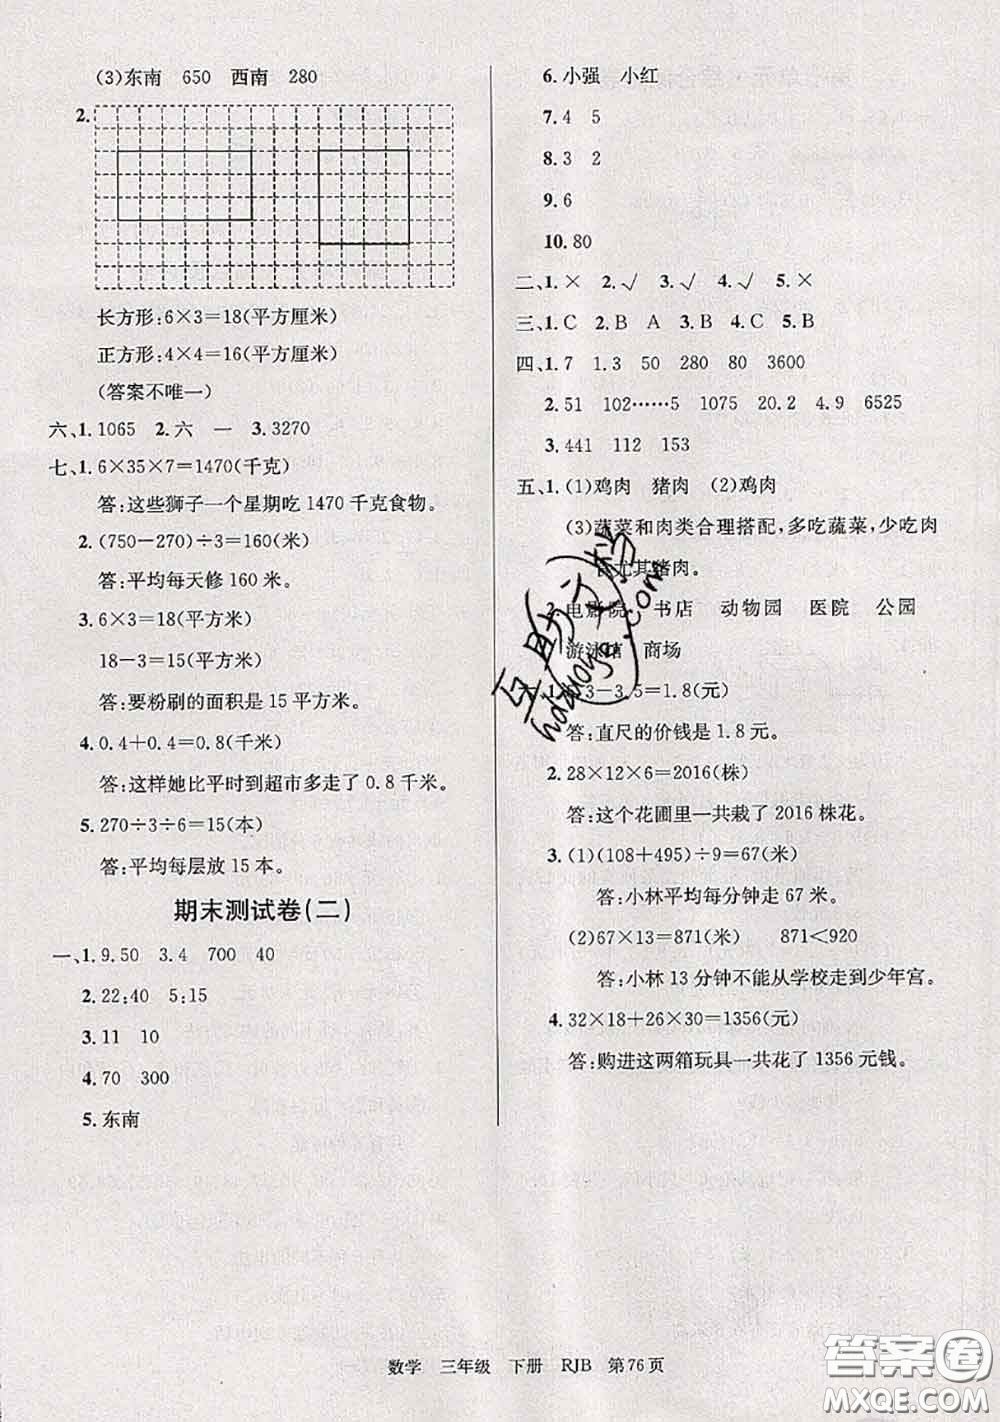 (3)东南 650 西南 280
2.
长方形:6×3=18(平方厘米)
正方形:4×4=16(平方厘米)
(答案不唯一)
六、1.1065 2.六 一 3.3270
七、1.6×35×7=1470(千克)
答:这些狮子一个星期吃 1470 千克食物。
2.(750-270)÷3=160(米)
答:平均每天修 160 米。
3.6×3=18(平方米)
18-3=15(平方米)
答:要粉刷的面积是 15 平方米。
4.0.4+0.4=0.8(千米)
答:这样她比平时到超市多走了 0.8 千米。
5.270÷3÷6=15(本)
答:平均每层放 15 本。
期末测试卷(二)
一、1.9.50 3.4 700 40
2.22:40 5:15
3.11 10
4.70 300
5.东南
6.小强 小红
7.4 5
8.3 2
9.6
10.80
二、1.× 2.√ 3.√ 4.√ 5.×
三、1.C 2.B A 3.B 4.C 5.B
四、1.7 1.3 50 280 80 3600
2.51 102……5 1075 20.2 4.9 6525
3.441 112 153
五、1.(1)鸡肉 猪肉 (2)鸡肉
(3)蔬菜和肉类合理搭配,多吃蔬菜,少吃肉
尤其猪肉。
2.电影院 书店 动物园 医院 公园
游泳馆 商场
3-3.5=1.8(元)
答:直尺的价钱是 1.8 元。
2.28×12×6=2016(株)
答:这个花圃里一共栽了 2016 株花。
3.(1)(108+495)÷9=67(米)
答:小林平均每分钟走 67 米。
(2)67×13=871(米) 871<920
答:小林 13 分钟不能从学校走到少年宫。
4.32×18+26×30=1356(元)
答:购进这两箱玩具一共花了 1356 元钱。
数学 三年级 下册 RJB 第76页
答案卷
MXQE.COM